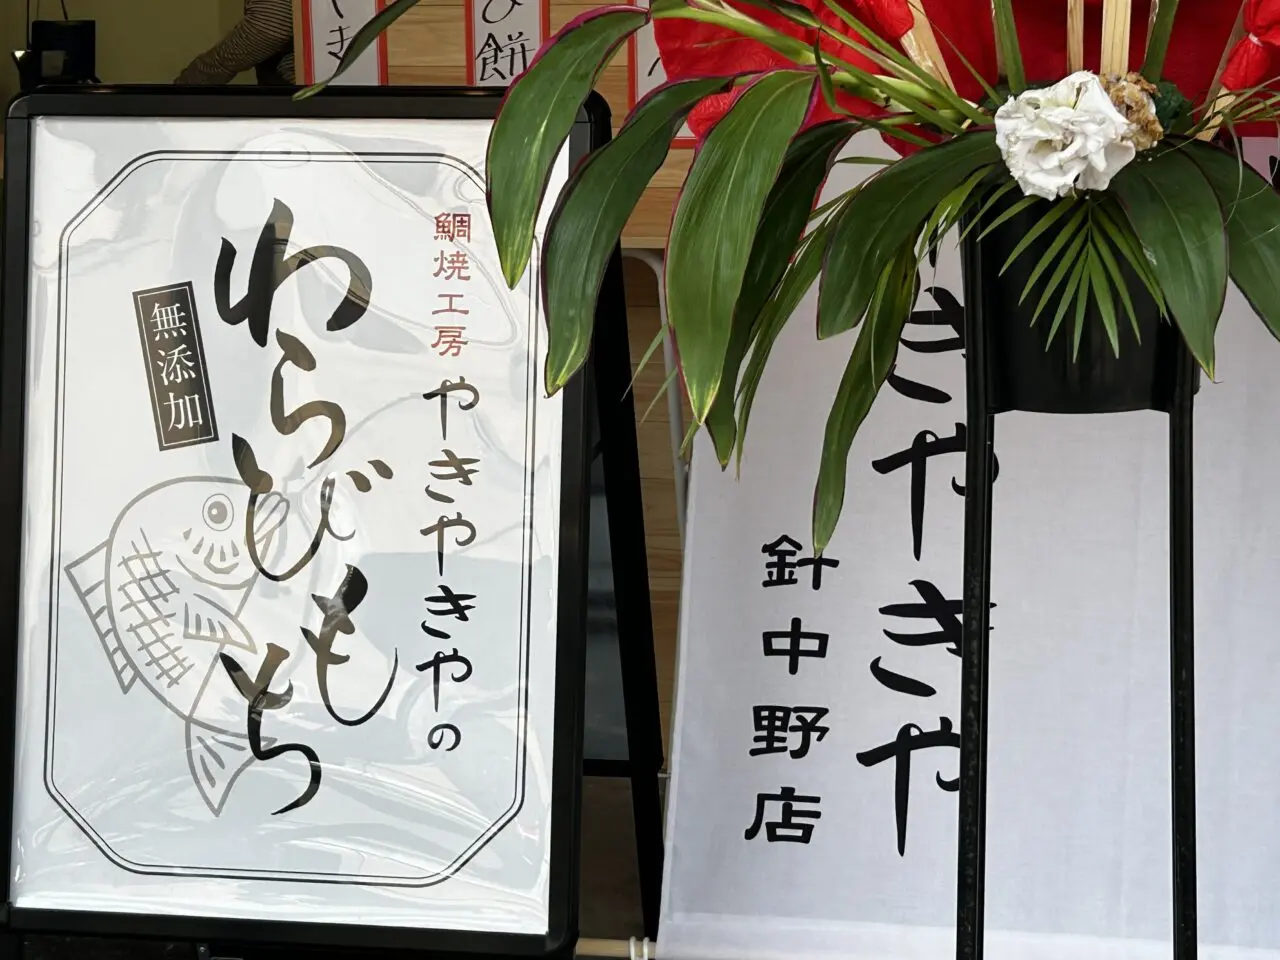 鯛焼工房 やきやきやの
わらびもち
無添加
きやきや
針中野店
き
び餅